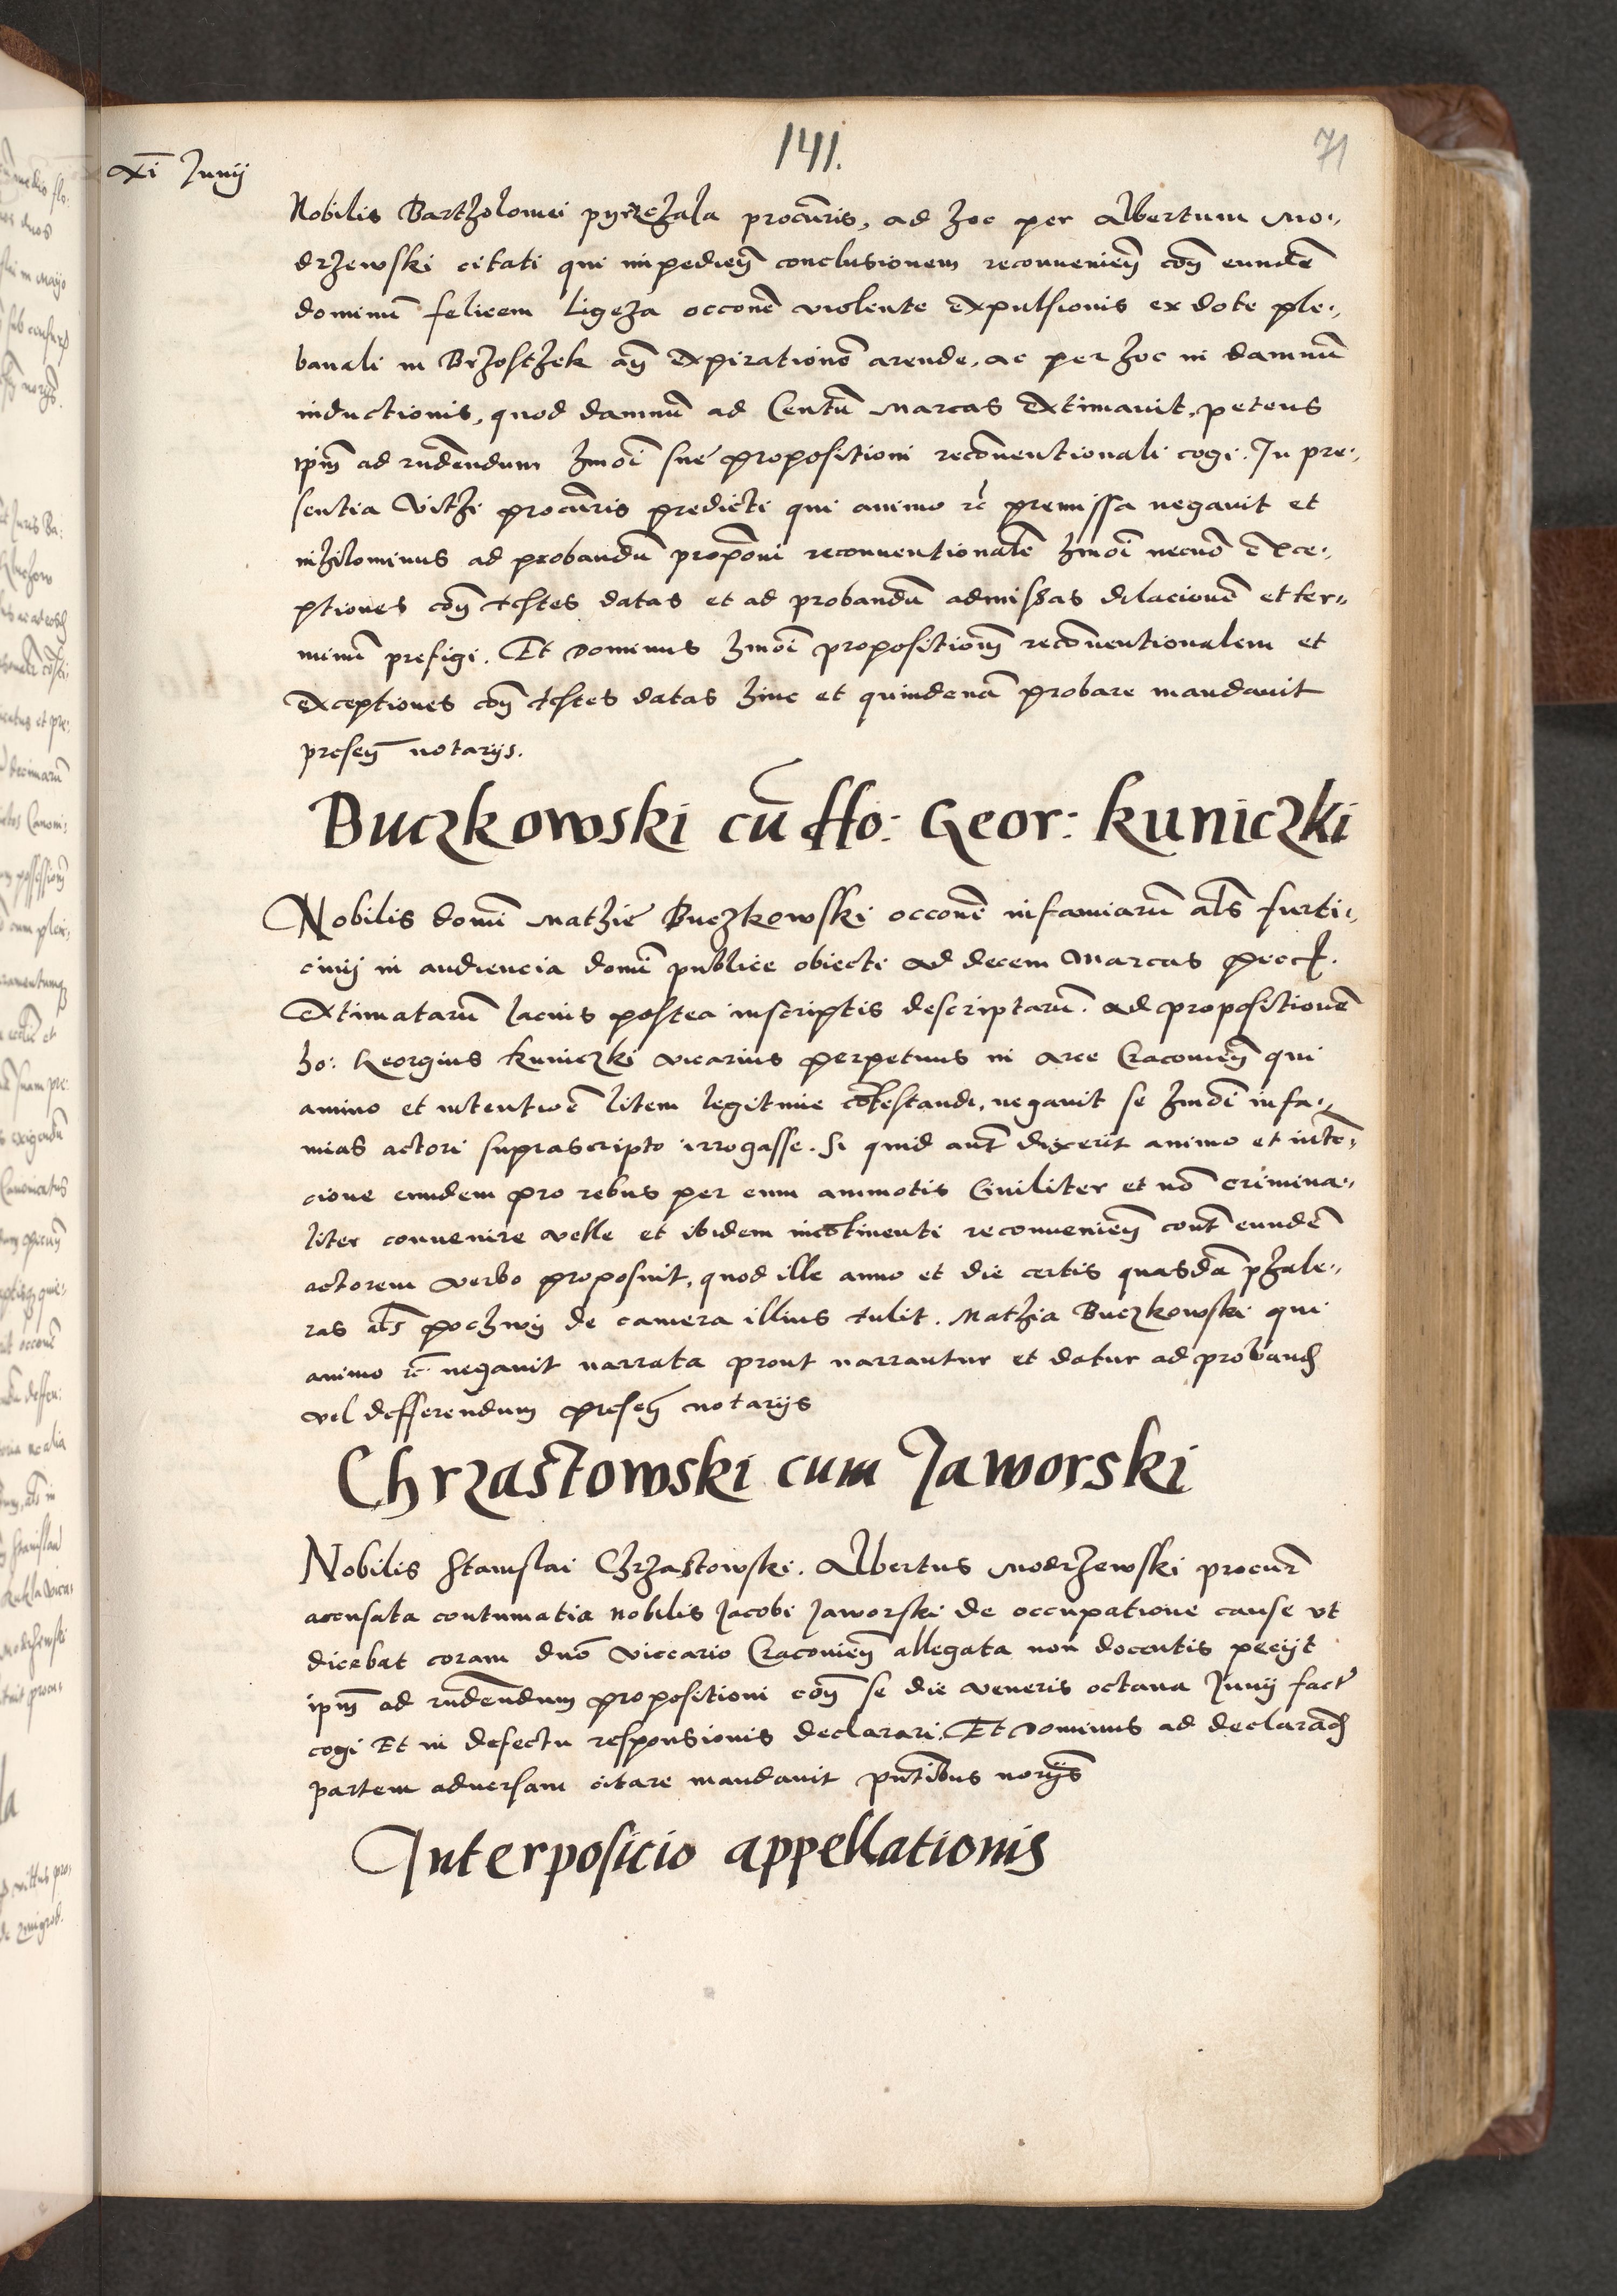 141.
71
xi Junij
Nobilis Bartholomei pyrzchala procuris, ad hoc per Albertum Mo-
drzewski citati qui impedien conclusionem reconuenien con eunde
dominu felicem Ligeza occone violente expulsionis ex dote ple-
banali in Brzosthek an expiratione arende, ac per hoc in damnu
inductionis, quod damnu ad Centu Marcas extimauit, petens
ipm ad rndendum hmoi sue propositioni reconuentionali cogi. In pre-
sentia Vithi procuris predicti qui animo rc premissa negauit et
nihilominus ad probandu proponi reconuentionale hmoi necno exce-
ptiones con testes datas et ad probandu admissas dilacione et ter-
minu prefigi. Et Dominus hmoi propositionem reconuentionalem et
exceptiones con testes datas hinc et quindena probare mandauit
presen notarijs.
Buczkowski cu Ho: Geor: Kuniczki
Nobilis domi Mathie Buczkowski occone infamiaru als furti-
cinij in audiencia domi publice obiecti ad decem Marcas
extimataru lacius postea inscriptis descriptaru. ad propositione
ho: Georgius Kuniczki vicarius perpetuus in arce Cracouien qui
animo et intentioe litem legitime cotestandi, negauit se hmoi infa-
mias actori suprascripto irrogasse. Si quid aut dixerit animo et inte-
cione eundem pro rebus per eum ammotis Ciuiliter et no crimina-
liter conuenire velle et ibidem incotinenti reconuenien cont eunde
actorem verbo proposuit, quod ille anno et die certis quasda phale-
ras als poczwy de camera illius tulit. Mathia Buczkowski qui
animo rc negauit narrata prout narrantur et datur ad proband
vel defferendum presen notarijs
Chrzastowski cum Jaworski
Nobilis Stanislai Chrzastowski. Albertus Modrzewski procur
accusata contumatia nobilis Jacobi Jaworski de occupatione cause vt
dicebat coram dno Viccario Cracouien allegata non docentis pecijt
ipm ad rndendum propositioni con se die veneris octaua Junij fact
cogi Et in defectu responsionis declarari. Et Dominus ad declarad
partem aduersam citare mandauit pntibus norijs
Interposicio appellationis